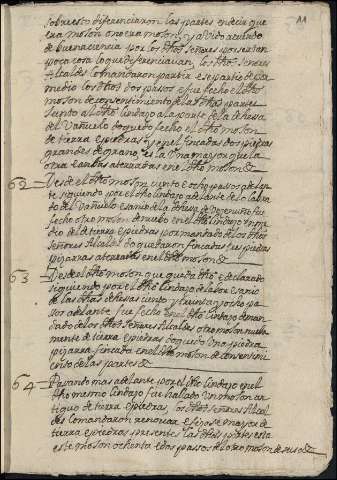 11
sobre esto diferenciaron las partes en decir que
era mojon o no era mojon, y avido acuerdo
de buena ciencia por los dhos señores por ser tan
poca cosa lo que diferenciavan, los dhos señores
Alcaldes mandaron partir ese partir de por
medio los dhos dos pasos e fue fecho el dho
mojon de consentimiento de las dhas partes
junto al dho lindajo a la parte de la dehesa
del Vañuelo do quedo fecho el dho mojon
de tierra e piedras y en el fincadas dos piedras
grandes de grano, es la una mayor que la
otra e ambas aterradas en el dho mojon &
62 — Desde el dho mojon ciento e ocho pasos adelan
te siguiendo por el dho lindajo adelante de lo labra
do del Vañuelo e sario de la dehesa de fue
fecho otro mojon de nuebo en el dho lindajo en me
dio del de tierra e piedras por mandado de los dhos
señores Alcaldes do quedaron fincadas tres piedras
pizarras aterradas en el dho mojon &
63 — Desde el dho mojon que queda dho e declarado
siguiendo por el dho lindajo de labor e sario
de las dhas dehesas ciento y treinta y ocho pa
sos adelante fue fecho en el dho lindajo de man
dado de los dhos señores Alcaldes otro mojon nueba
mente de tierra e piedras do quedo una piedra
pizarra fincada en el dho mojon de consentimi
ento de las partes &
64 — Pasando mas adelante por el dho lindajo en el
dho mesmo lindajo fue hallado un mojon an
tiguo de tierra e piedras los dhos señores Alcal
des mandaron renovar e fizose mayor de
tierra e piedras presentes las dhas partes esta
este mojon ochenta e dos pasos del otro mojon de suso &